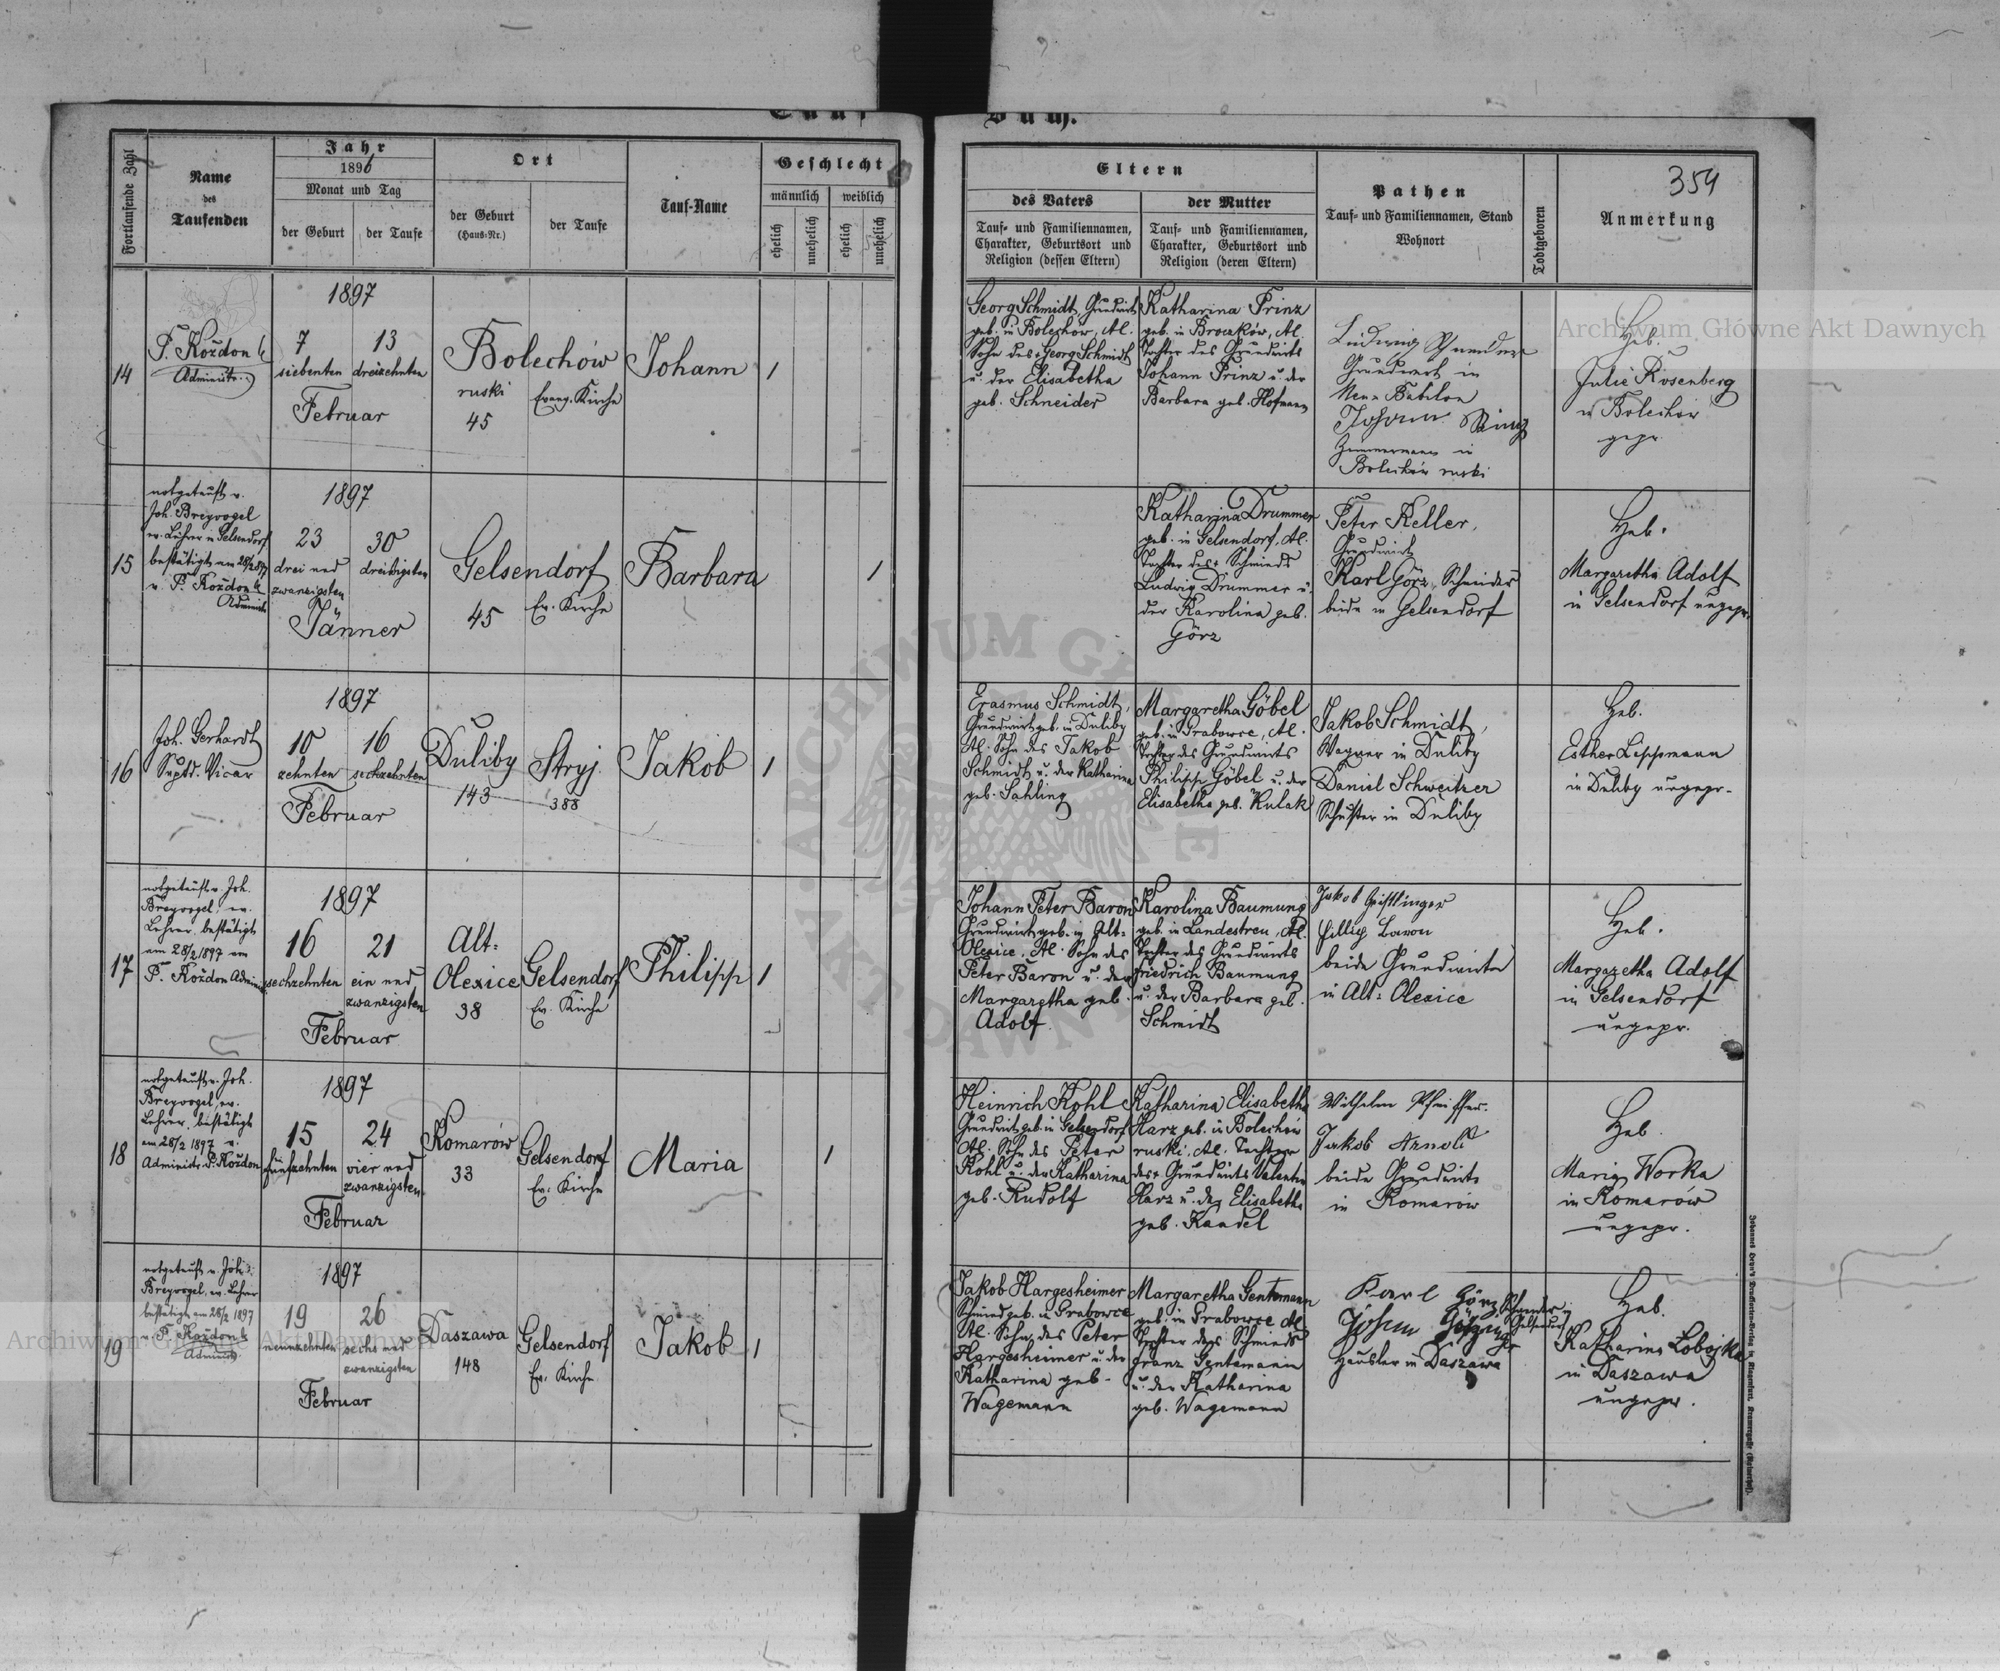 Tauf
Buch.
Fortlaufende Zahl
Name
des
Taufenden
Jahr
1896
Monat und Tag
der Geburt
der Taufe
Ort
der Geburt
(Haus-Nr.)
der Taufe
Tauf-Name
Geschlecht
männlich
weiblich
ehelich
unehelich
ehelich
unehelich
Eltern
des Vaters
Tauf- und Familiennamen,
Charakter, Geburtsort und
Religion (dessen Eltern)
der Mutter
Tauf- und Familiennamen,
Charakter, Geburtsort und
Religion (deren Eltern)
Pathen
Tauf- und Familiennamen, Stand
Wohnort
Todtgeboren
354
Anmerkung
14
P. Koždon
Administr.
1897
7
siebenten
13
dreizehnten
Februar
Bolechów
ruski
45
Evang. Kirche
Johann
1
Georg Schmidt, Grundwirt
geb. in Bolechów, Al.
Sohn des + Georg Schmidt
u. der Elisabetha
geb. Schneider
Katharina Prinz
geb. in Broczków, Al.
Tochter des Grundwirts
Johann Prinz u. der
Barbara geb. Hofmann
Ludwig Schneider
Grundwirt in
Neu-Babilon
Johann
Zimmermann in
Bolechów ruski
Heb.
Julie Rosenberg
in Bolechów
gepr.
15
notgetauft v.
Joh. Breyvogel
ev. Lehrer in Gelsendorf
bestätigt am 28/2 897
v. P. Koždon
Administr.
1897
23
drei und
zwanzigsten
30
dreißigsten
Jänner
Gelsendorf
45
Ev. Kirche
Barbara
1
Katharina Drummer
geb. in Gelsendorf, Al.
Tochter des + Schmieds
Ludwig Drummer u.
der Karolina geb.
Görz
Peter Keller,
Grundwirt
Karl Görz, Schneider
beide in Gelsendorf
Heb.
Margaretha Adolf
in Gelsendorf ungepr.
16
Joh. Gerhardt
Suptd. Vicar
1897
10
zehnten
16
sechzehnten
Februar
Duliby
143
Stryj
388
Jakob
1
Erasmus Schmidt,
Grundwirt geb. in Duliby
Al. Sohn des Jakob
Schmidt u. der Katharina
geb. Sahling
Margaretha Göbel
geb. in Grabowce, Al.
Tochter des Grundwirts
Philipp Göbel u. der
Elisabetha geb. Kulak
Jakob Schmidt,
Wagner in Duliby
Daniel Schweitzer
Schuster in Duliby
Heb.
Esther Lippmann
in Duliby ungepr.
17
notgetauft v. Joh.
Breyvogel, ev.
Lehrer, bestätigt
am 28/2 1897 von
P. Koždon Administr.
1897
16
sechzehnten
21
ein und
zwanzigsten
Februar
Alt-
Olexice
38
Gelsendorf
Ev. Kirche
Philipp
1
Johann Peter Baron
Grundwirt geb. in Alt-
Olexice, Al. Sohn des
Peter Baron u. der
Margaretha geb.
Adolf
Karolina Baumung
geb. in Landestreu, Al.
Tochter des Grundwirts
Friedrich Baumung
u. der Barbara geb.
Schmidt
Jakob Geistlinger
Fillip Baron
beide Grundwirte
in Alt-Olexice
Heb.
Margaretha Adolf
in Gelsendorf
ungepr.
18
notgetauft v. Joh.
Breyvogel, ev.
Lehrer, bestätigt
am 28/2 1897 v.
Administr. P. Koždon
1897
15
fünfzehnten
24
vier und
zwanzigsten
Februar
Komarów
33
Gelsendorf
Ev. Kirche
Maria
1
Heinrich Kohl
Grundwirt geb. in Gelsendorf
Al. Sohn des Peter
Kohl u. der Katharina
geb. Rudolf
Katharina Elisabetha
Harz geb. in Bolechów
ruski, Al. Tochter
des + Grundwirts Valentin
Harz u. der Elisabetha
geb. Kandel
Wilhelm Pfeiffer.
Jakob Arnold
beide Grundwirte
in Komarów
Heb.
Maria Worka
in Komarów
ungepr.
19
notgetauft v. Joh.
Breyvogel, ev. Lehrer
bestätigt am 28/2 1897
v. P. Koždon
Administr.
1897
19
neunzehnten
26
sechs und
zwanzigsten
Februar
Daszawa
148
Gelsendorf
Ev. Kirche
Jakob
1
Jakob Hargesheimer
Schmied geb. in Grabowce
Al. Sohn des Peter
Hargesheimer u. der
Katharina geb.
Wagemann
Margaretha Gentemann
geb. in Grabowce Al.
Tochter des Schmieds
Franz Gentemann
u. der Katharina
geb. Wagemann
Karl Görz Schneider in
Gelsendorf
Johann
Häusler in Daszawa
Heb.
Katharina Lobojka
in Daszawa
ungepr.
Archiwum Główne Akt Dawnych
Archiwum Główne Akt Dawnych
ARCHIWUM GŁÓWNE AKT DAWNYCH